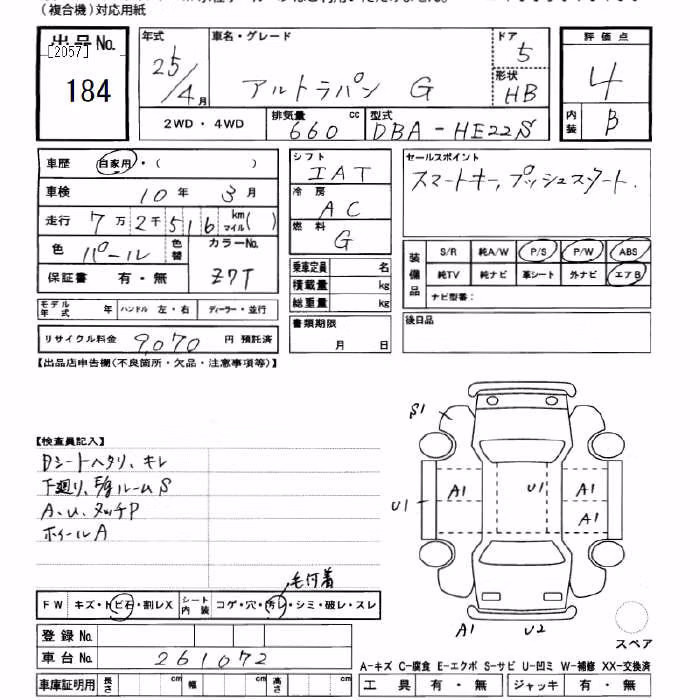 (複合機)対応用紙
出品No.
[2057]
184
年式
25/4月
車名・グレード
アルトラパン G
ドア
5
形状
HB
評価点
4
内装
B
2WD・4WD
排気量
660 cc
型式
DBA-HE22S
車歴 自家用・( )
車検 10年 3月
走行 7万2千516 km マイル( )
色 パール 色替
カラーNo.
Z7T
保証書 有・無
モデル年式 年 ハンドル 左・右 ディーラー・並行
リサイクル料金 9,070 円 預託済
シフト
IAT
冷房
AC
燃料
G
乗車定員 名
積載量 kg
総重量 kg
書類期限
月 日
セールスポイント
スマートキー, プッシュスタート.
装備品
S/R 純A/W P/S P/W ABS
純TV 純ナビ 革シート 外ナビ エアB
ナビ型番:
後日品
【出品店申告欄(不良箇所・欠品・注意事項等)】
【検査員記入】
Dシートヘタリ、キレ
下廻り、E/gルームS
A、U、タッチP
ホイールA
S1
U1
A1
U1
A1
A1
A1
U2
毛付着
FW キズ・トビ石・割レX
シート内装 コゲ・穴・汚レ・シミ・破レ・スレ
登録No.
車台No. 261072
車庫証明用 長さ cm 幅 cm 高さ cm
スペア
A-キズ C-腐食 E-エクボ S-サビ U-凹ミ W-補修 XX-交換済
工具 有・無 ジャッキ 有・無